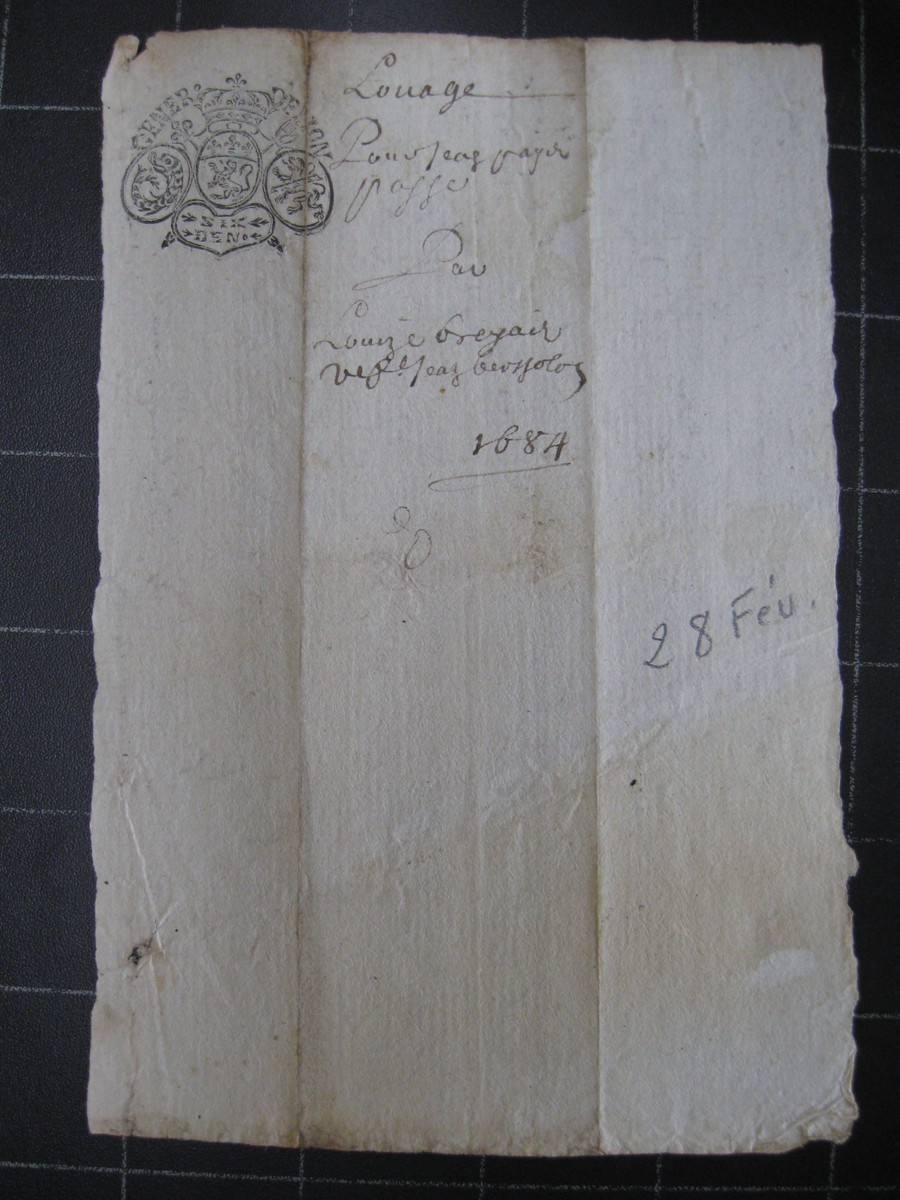 GENER. DE LION
SIX
DEN.
Louage
Pour Jean payer
passe
Par
Louize breyair
vefe Jean berssolon
1684
28 Fév.